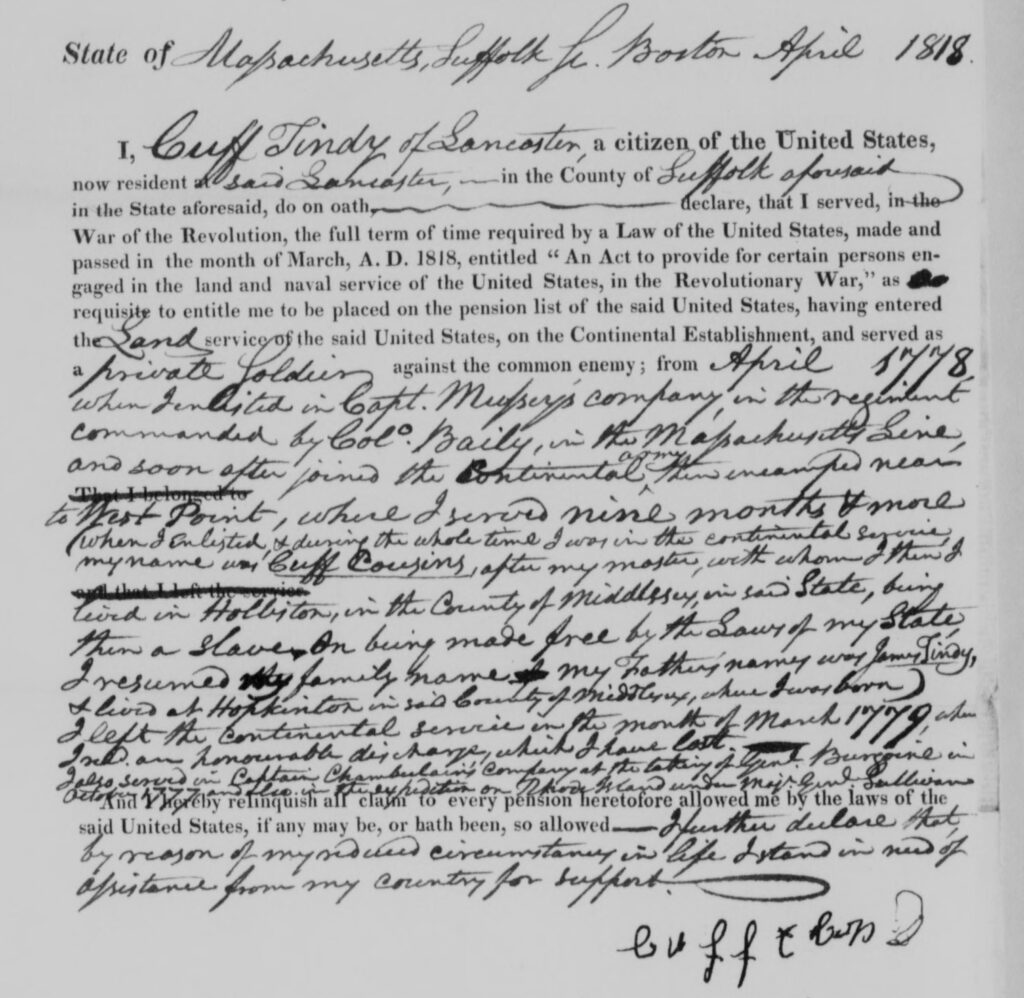 State of Massachusetts, Suffolk Sc. Boston April 1818.
I, Cuff Tindy of Lancaster, a citizen of the United States,
now resident at said Lancaster, in the County of Suffolk aforesaid
in the State aforesaid, do on oath, declare, that I served, in the
War of the Revolution, the full term of time required by a Law of the United States, made and
passed in the month of March, A. D. 1818, entitled "An Act to provide for certain persons en-
gaged in the land and naval service of the United States, in the Revolutionary War," as
requisite to entitle me to be placed on the pension list of the said United States, having entered
the Land service of the said United States, on the Continental Establishment, and served as
a private Soldier against the common enemy; from April 1778,
when I enlisted in Capt. Mussey's company, in the regiment
commanded by Colo. Baily, in the Massachusetts Line,
and soon after joined the Continental army then encamped near
That I belonged to
to West Point, where I served nine months & more
(when I enlisted, & during the whole time I was in the continental service,
my name was Cuff Cousins, after my master, with whom I then I
and that I left the service
lived in Holliston, in the County of Middlesex, in said State, being
then a slave. On being made free by the Laws of my State,
I resumed my family name my Father's names was James Tindy,
& lived at Hopkinton in said County of Middlesex, where I was born)
I left the continental service in the month of March 1779, when
I recd. an honourable discharge, which I have lost.
I also served in Captain Chamberlain's company at the taking of Genl. Burgoine in
October 1777 and also in the expedition on Rhode Island under Majr. Genl. Sullivan
And I hereby relinquish all claim to every pension heretofore allowed me by the laws of the
said United States, if any may be, or hath been, so allowed I further declare that,
by reason of my reduced circumstances in life I stand in need of
assistance from my country for support.
Cuff